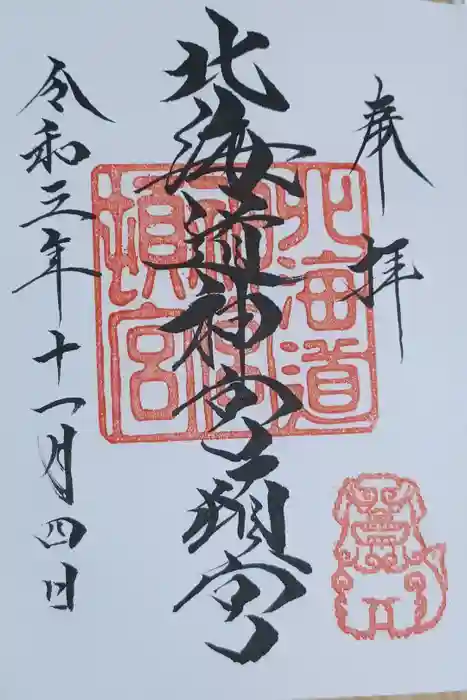 奉拝
北海道神宮頓宮
令和三年十一月四日
北海道
神宮
頓宮